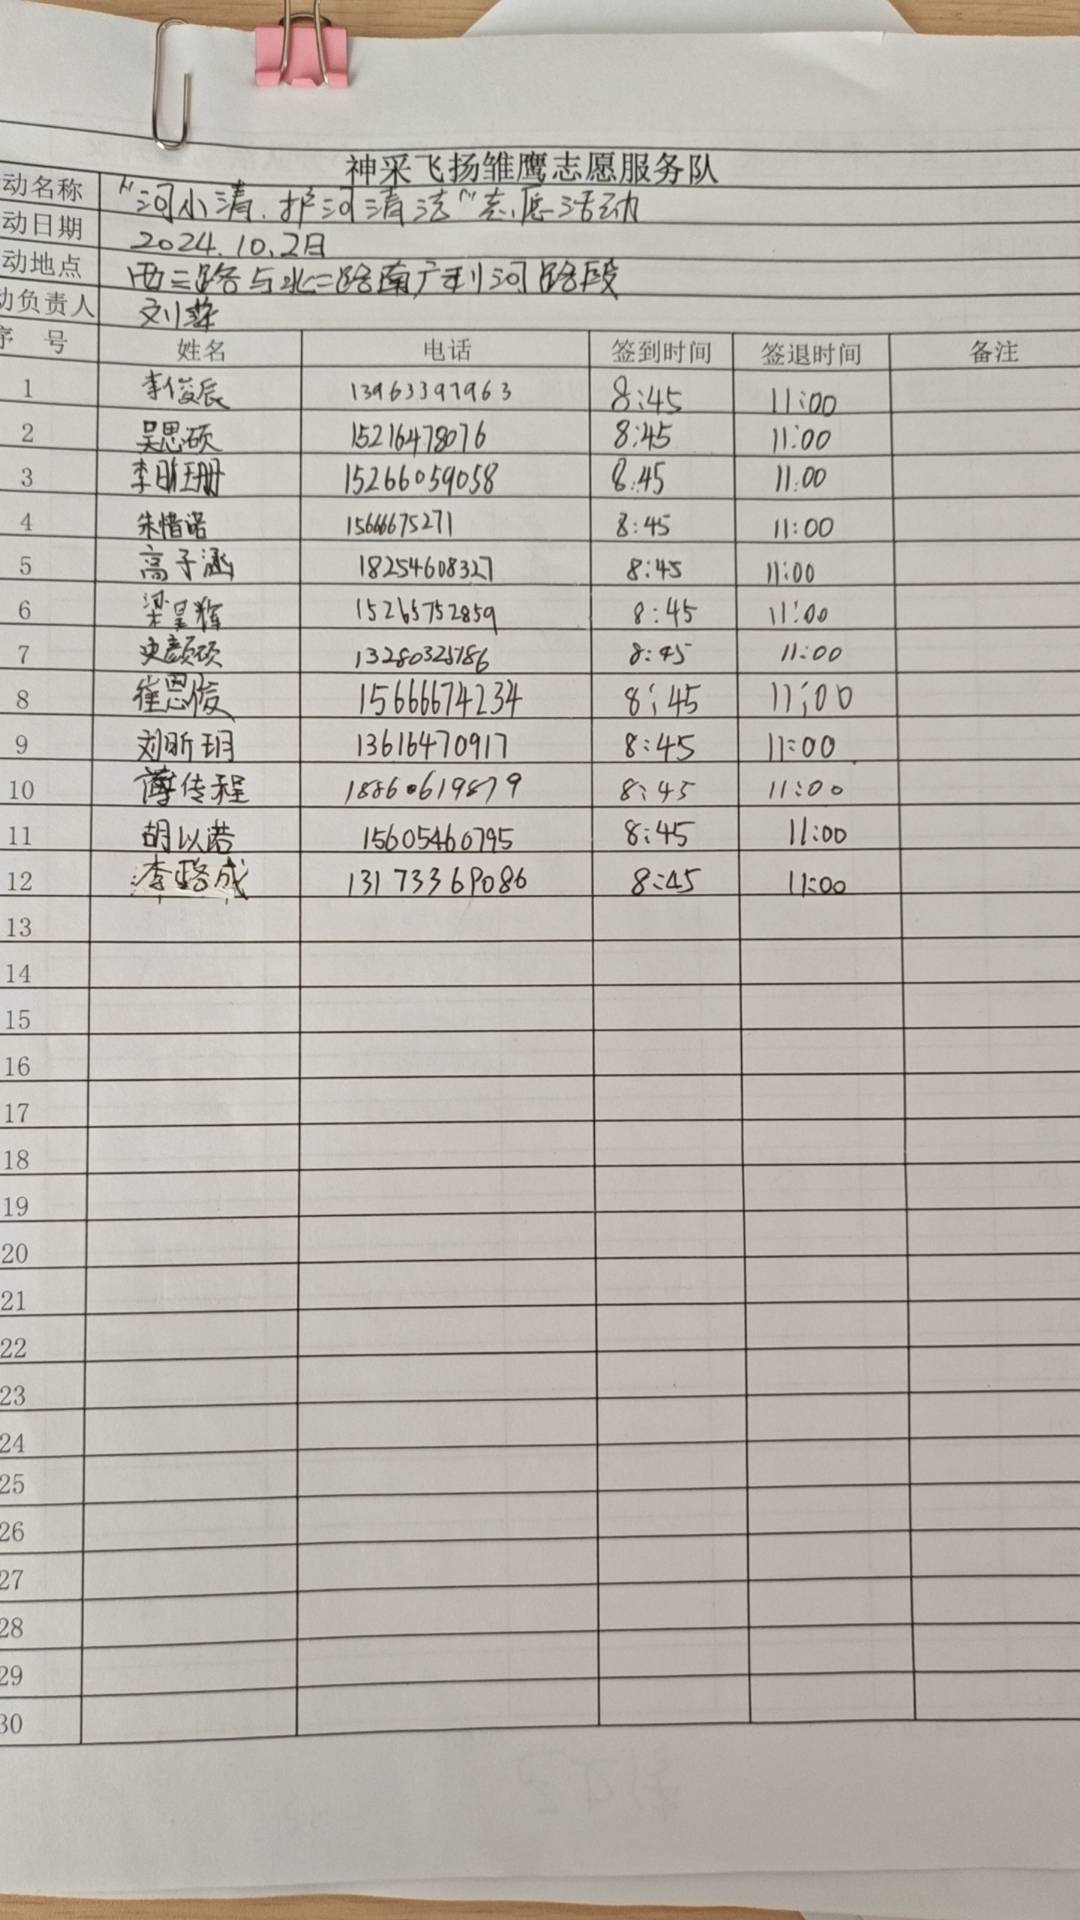 神采飞扬雏鹰志愿服务队
动名称 "河小清.护河清洁"志愿活动
动日期 2024.10.2日
动地点 西二路与北二路南广利河路段
动负责人 刘
序 号 姓名 电话 签到时间 签退时间 备注
1 李俊辰 13963397963 8:45 11:00
2 吴思硕 15216478076 8:45 11:00
3 李昕珊 15266059058 8:45 11:00
4 朱惜诺 15666675271 8:45 11:00
5 高子涵 18254608327 8:45 11:00
6 梁呈辉 15265752859 8:45 11:00
7 史颜硕 13280325786 8:45 11:00
8 崔恩俊 15666674234 8:45 11:00
9 刘昕玥 13616470917 8:45 11:00
10 薄传程 18860619879 8:45 11:00
11 胡以诺 15605460795 8:45 11:00
12 李路成 13173369086 8:45 11:00
13
14
15
16
17
18
19
20
21
22
23
24
25
26
27
28
29
30